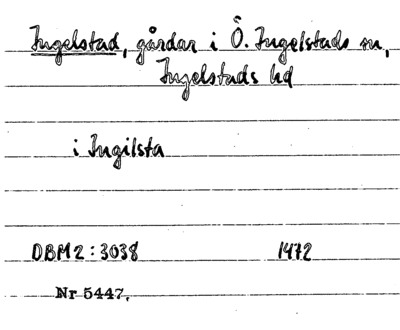 Ingelstad, gårdar i Ö. Ingelstads sn,
Ingelstads hd
i Ingilsta
DBM2:3038 1472
Nr 5447.